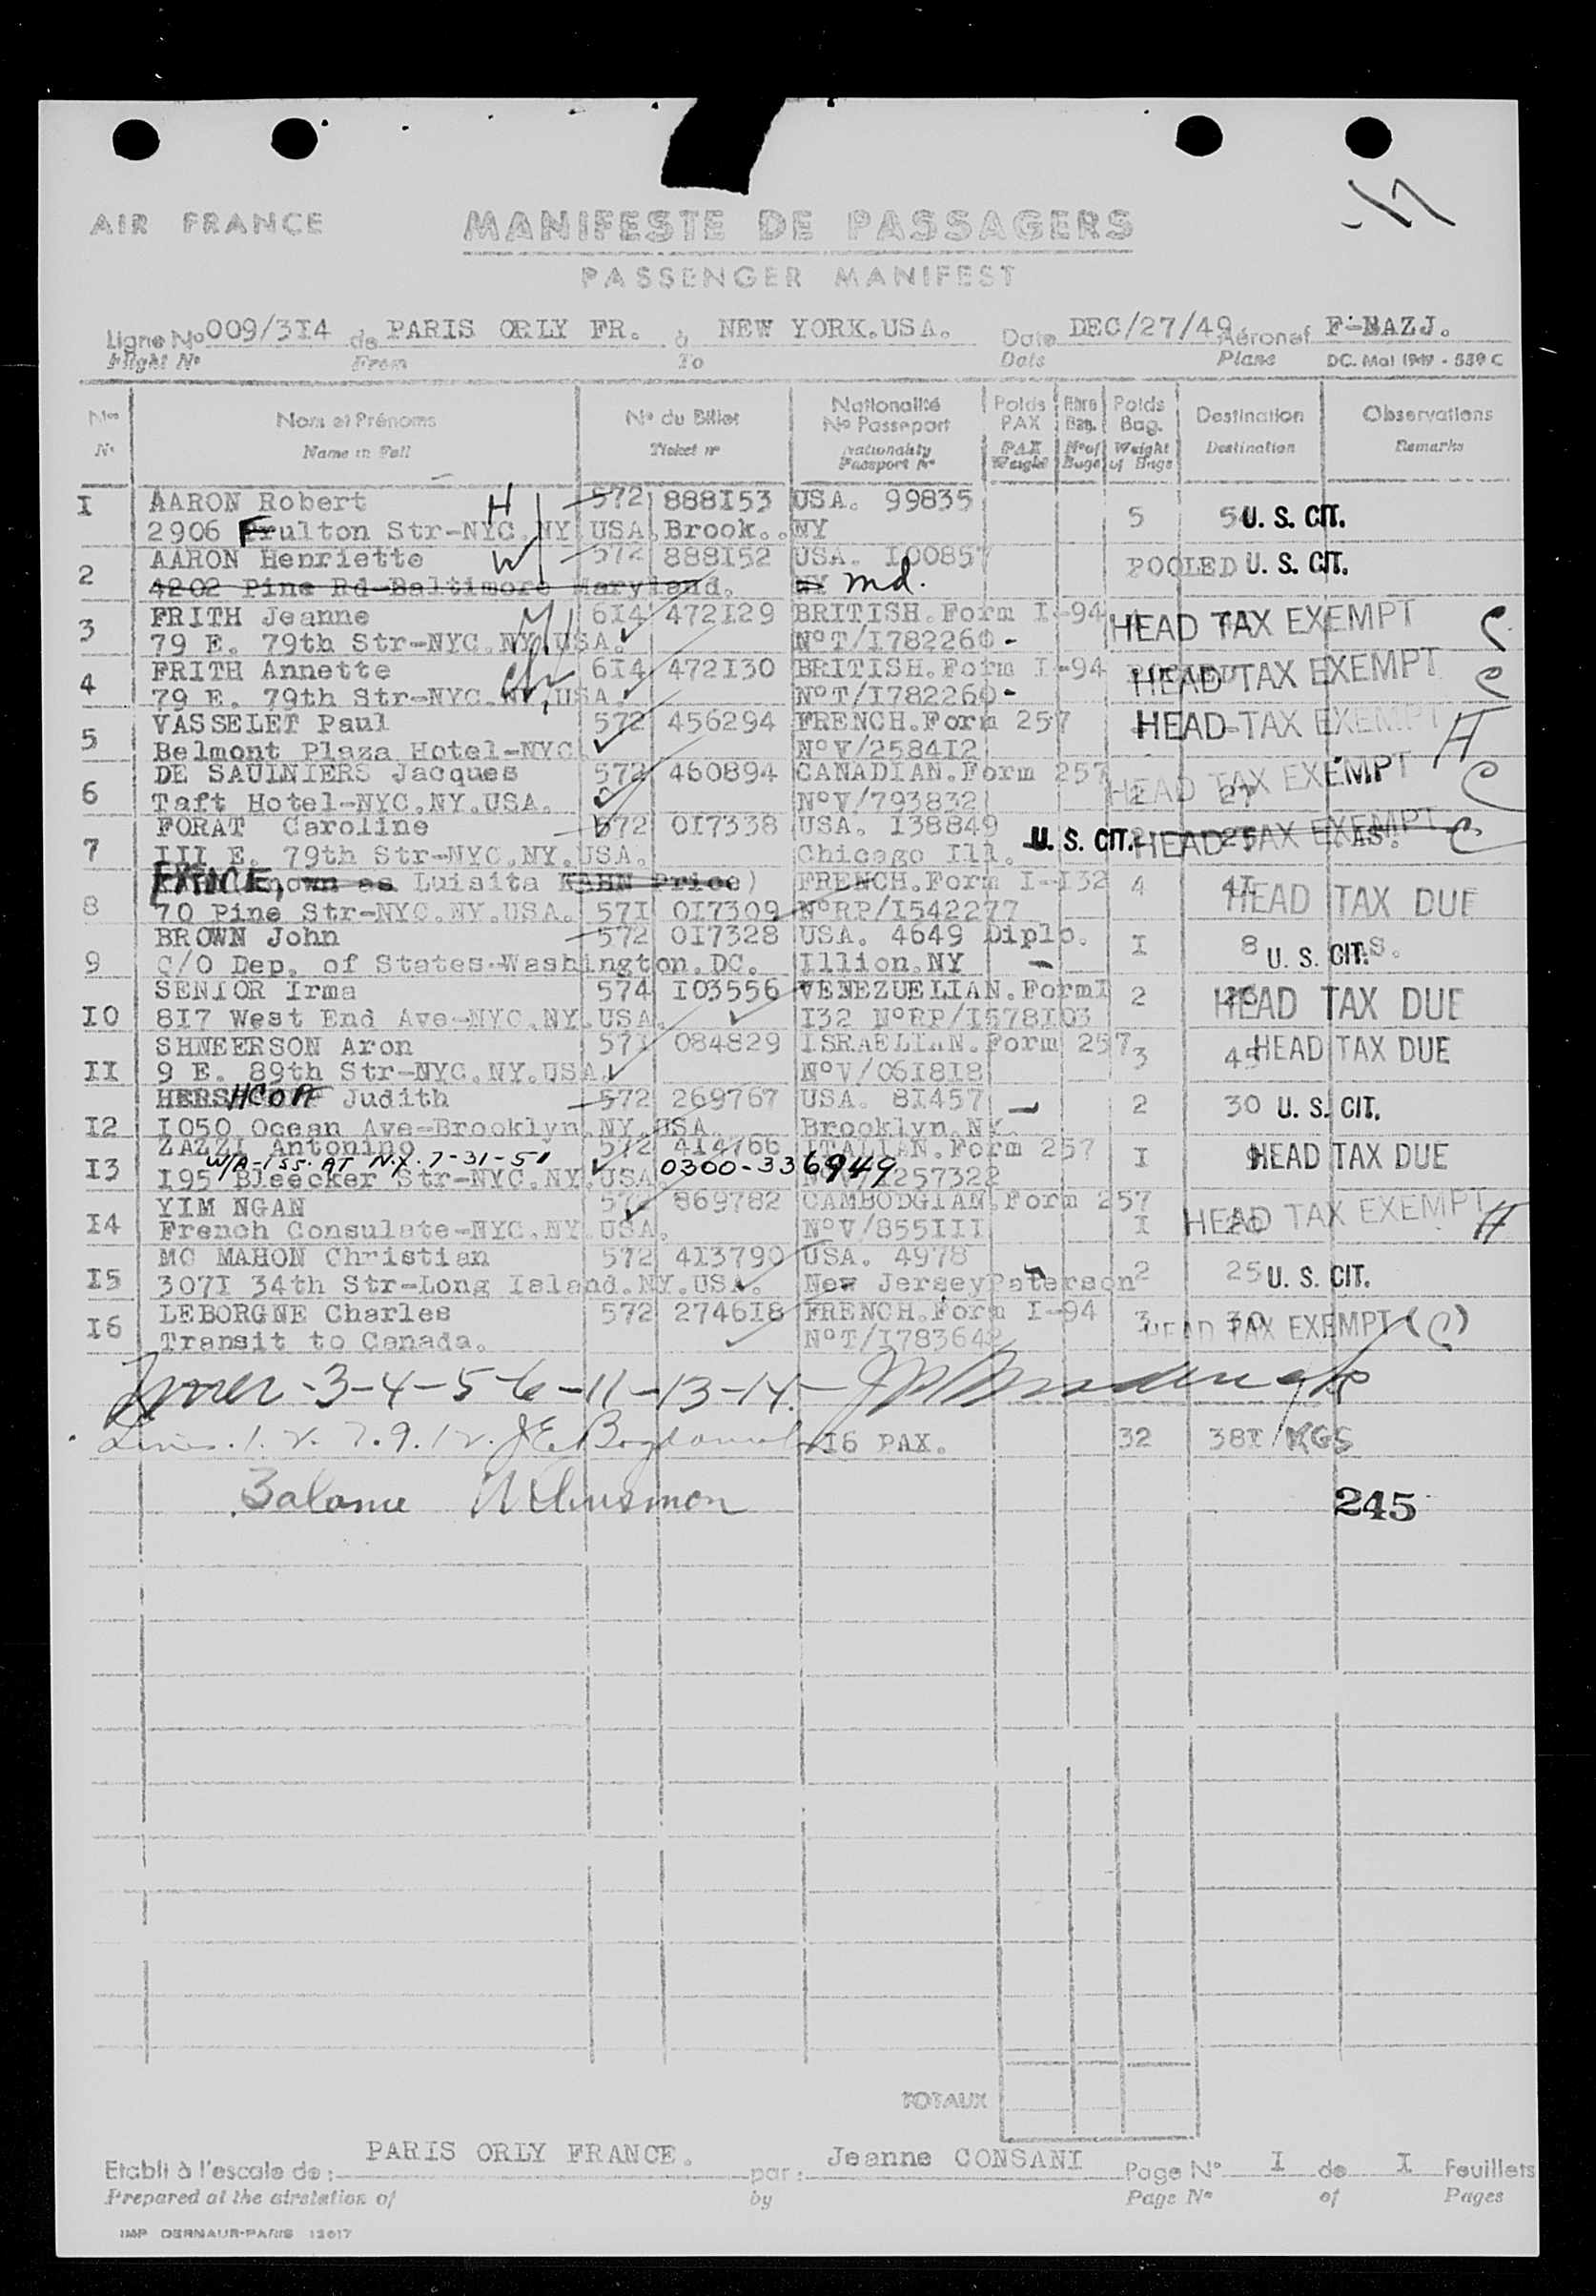 AIR FRANCE
MANIFESTE DE PASSAGERS
PASSENGER MANIFEST
Ligne No 009/3I4 de PARIS ORLY FR. à NEW YORK.USA. Date DEC/27/49 Aéronef F-BAZJ.
Flight No From To Date Plane DC. Mai 1949 - 539 C
Nos Nom et Prénoms No du Billet Nationalité No Passeport Poids PAX Nbre Bag. Poids Bag. Destination Observations
N. Name in Full Ticket no Nationality Passport No PAX Weight No of Bags Weight of Bags Destination Remarks
I AARON Robert H 572 888I53 USA. 99835
2906 Fulton Str-NYC.NY.USA.Brook..NY 5 U. S. CIT.
AARON Henriette W 572 888I52 USA. I00857
2 4202 Pine Rd-Baltimore Maryland. NY Md. POOLED U. S. CIT.
FRITH Jeanne 6I4 472I29 BRITISH.Form I-94 HEAD TAX EXEMPT C
3 79 E. 79th Str-NYC.NY.USA. NoT/I782260 -
FRITH Annette 6I4 472I30 BRITISH.Form I-94 HEAD TAX EXEMPT C
4 79 E. 79th Str-NYC.NY.USA. NoT/I782260 -
VASSELET Paul 572 456294 FRENCH.Form 257 HEAD TAX EXEMPT H
5 Belmont Plaza Hotel-NYC. NoV/2584I2
DE SAULNIERS Jacques 572 460894 CANADIAN.Form 257 HEAD TAX EXEMPT C
6 Taft Hotel-NYC.NY.USA. NoV/793832 2 27
FORAT Caroline 572 0I7338 USA. I38849 U. S. CIT. HEAD TAX EXEMPT C
7 III E. 79th Str-NYC.NY.USA. Chicago Ill. 25
PRICE, known as Luisita KAHN Price) FRENCH.Form I-I32 4 4I HEAD TAX DUE
8 70 Pine Str-NYC.NY.USA. 57I 0I7309 NoRP/I542277
BROWN John 572 0I7328 USA. 4649 Diplo. I 8 U. S. CIT.
9 C/O Dep. of States-Washington.DC. Illion.NY -
SENIOR Irma 574 I03556 VENEZUELIAN.FormI 2 HEAD TAX DUE
I0 8I7 West End Ave-NYC.NY.USA. I32 NoRP/I578I03
SHNEERSON Aron 57I 084829 ISRAELIAN.Form 257 3 45 HEAD TAX DUE
II 9 E. 89th Str-NYC.NY.USA. NoV/06I8I8
HERSHCOPF Judith 572 269767 USA. 8I457 - 2 30 U. S. CIT.
I2 I050 Ocean Ave-Brooklyn.NY.USA. Brooklyn.NY.
ZAZZI Antonino 572 4I4766 ITALIAN.Form 257 I HEAD TAX DUE
W/A-155. AT N.Y. 7-31-51 0300-336949
I3 I95 Bleecker Str-NYC.NY.USA. NoV/I257322
YIM NGAN 572 869782 CAMBODGIAN.Form 257 HEAD TAX EXEMPT H
I4 French Consulate-NYC.NY.USA. NoV/855III I
MC MAHON Christian 572 4I3790 USA. 4978 2 25 U. S. CIT.
I5 307I 34th Str-Long Island.NY.USA. New JerseyPaterson
LEBORGNE Charles 572 2746I8 FRENCH.Form I-94 3 30 HEAD TAX EXEMPT (C)
I6 Transit to Canada. NoT/I783642
-3-4-5-6-11-13-14-
Lines. 1. 2. 7. 9. 12. I6 PAX. 32 38I KGS
Balance
245
TOTAUX
Etabli à l'escale de : PARIS ORLY FRANCE. par : Jeanne CONSANI Page No I de I Feuillets
Prepared at the airstation of by Page No of Pages
IMP DERNAUR-PARIS 12017